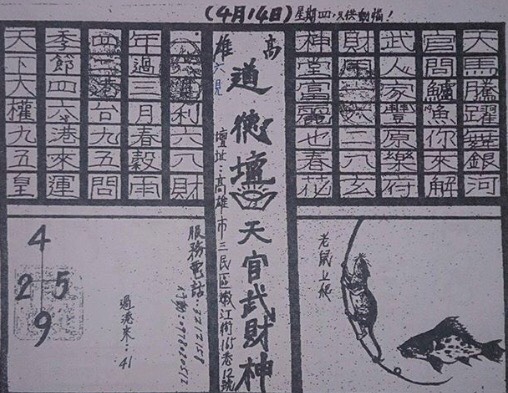 (4月14日) 星期四,只供動腦!
高雄
道德壇
天官武財神
壇址:高雄市三民區嫩江街165巷12號
天馬騰躍銀河
官問鱸魚你來解
武人家豐原樂付
財二八玄
神堂富麗也春花
利六八財
年過三月春穀雨
四港台九五問
季節四六港來運
天下大權九五皇
老鼠上
服務電話:3212158
過港來 41
4
2 5
9